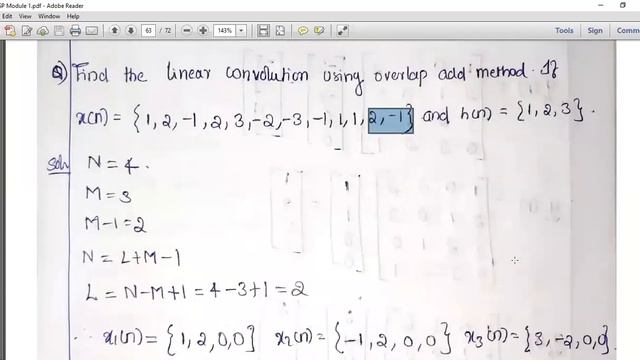 SP Module 1.pdf - Adobe Reader
File Edit View Window Help
63 / 72 143% Tools Sign Comment
Q) Find the linear convolution using overlap add method. If
x(n) = {1, 2, -1, 2, 3, -2, -3, -1, 1, 1, 2, -1} and h(n) = {1, 2, 3}.
Soln N = 4.
M = 3
M-1 = 2
N = L+M-1
L = N-M+1 = 4-3+1 = 2
∴ x1(n) = {1, 2, 0, 0} x2(n) = {-1, 2, 0, 0} x3(n) = {3, -2, 0, 0}.